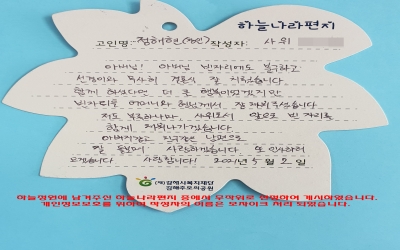 하늘나라편지
고인명: 정해현(장인) 작성자: 사위
아버님! 아버님 빈자리에도 불구하고
선경이와 무사히 결혼식 잘 치뤘습니다
함께 하셨다면 더 좋 행복이였겠지만
빈자리를 어머니와 형님께서 잘 채워주셨습니다
저도 부족하나마, 사위로서 앞으로 빈 자리를
함께 채워나가겠습니다
아버지같은 친구같은 남편으로
잘 돌보며 사랑하겠습니다. 또 인사하러
오겠습니다 사랑합니다! 2021년 5월 2일
(재)김해시복지재단
김해추모의공원
하늘정원에 남겨주신 하늘나라편지 중에서 무작위로 선발하여 게시하였습니다.
개인정보보호를 위하여 작성자의 이름은 모자이크 처리 되었습니다.